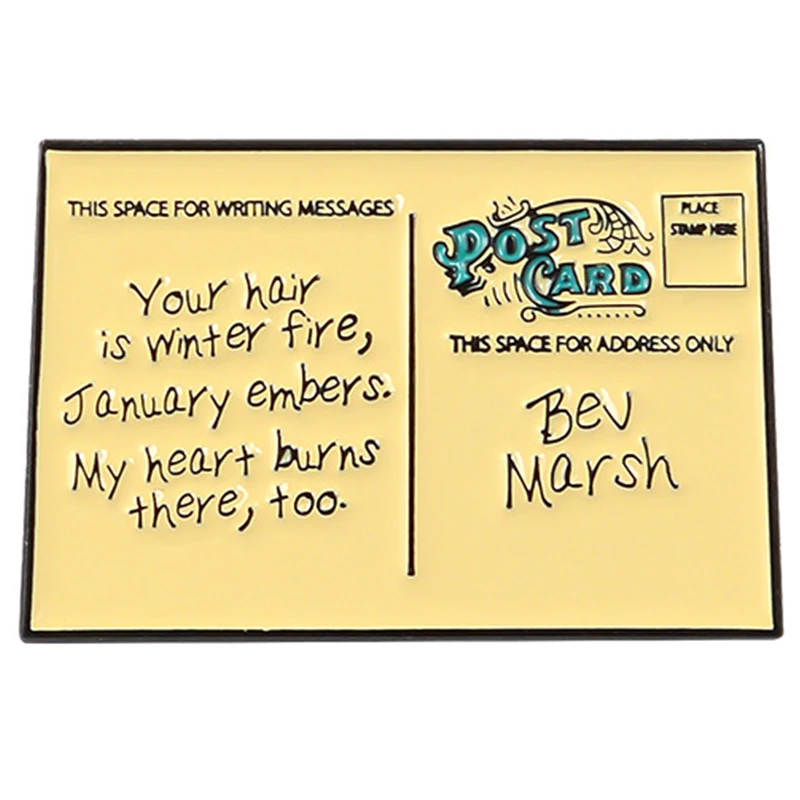 THIS SPACE FOR WRITING MESSAGES
Your hair
is winter fire,
January embers.
My heart burns
there, too.
POST
CARD
PLACE
STAMP HERE
THIS SPACE FOR ADDRESS ONLY
Bev
Marsh